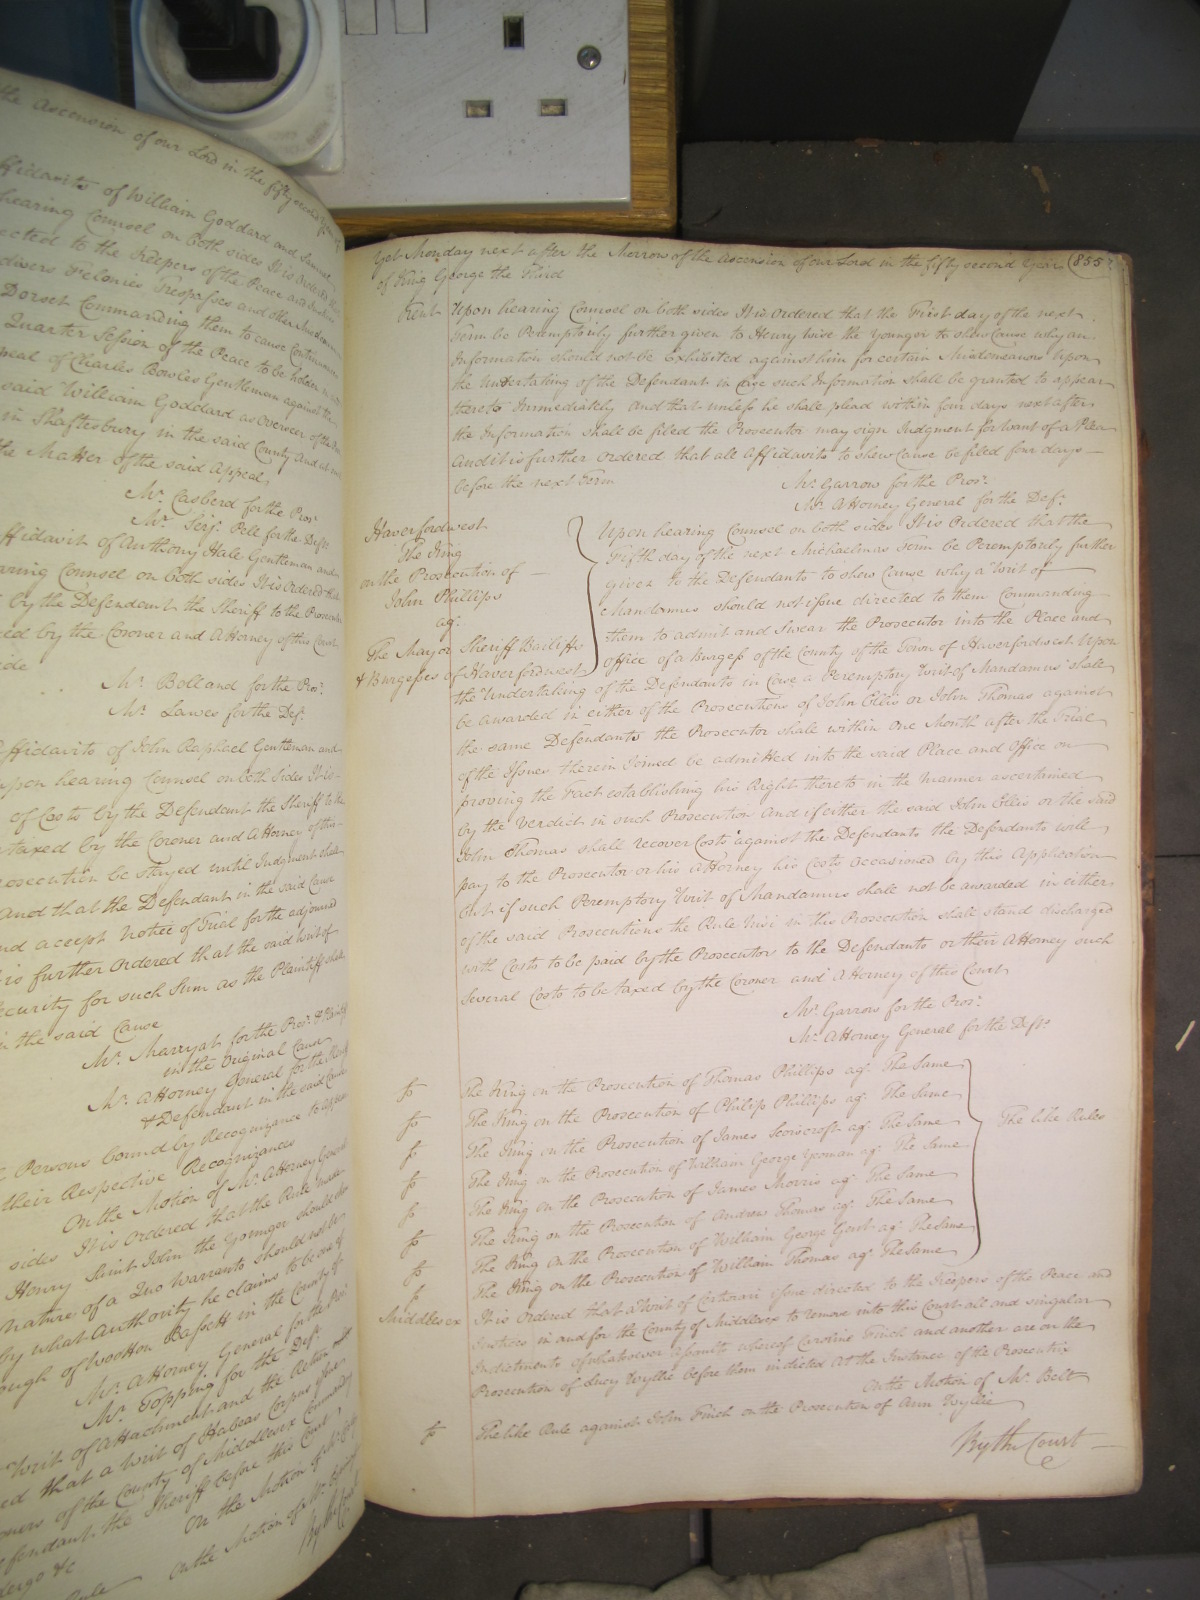 the Ascension of our Lord in the fifty second
ffidavits of William Goddard and Samuel
hearing Counsel on both sides It is Ordered
ected to the Keepers of the Peace and
divers Felonies Trespasses and other
Dorset Commanding them to cause
Quarter Session of the Peace to be holden
peal of Charles Bowles Gentleman against the
said William Goddard as Overseer of the
in Shaftesbury in the said County and
the Matter of the said Appeal
Mr. Casberd for the Pros.
Mr. Serj. Pell for the Defts
ffidavit of Anthony Hale Gentleman and
aring Counsel on both sides It is Ordered
by the Defendant the Sheriff to the Prosecutor
ed by the Coroner and Attorney of this Court
ide
Mr. Bolland for the Pros.
Mr. Lawes for the Def.
ffidavits of John Raphael Gentleman and
upon hearing Counsel on both Sides It is
of Costs by the Defendant the Sheriff to the
taxed by the Coroner and Attorney of this
rosecution be stayed until Judgment
And that the Defendant in the said Cause
nd accept Notice of Trial for the adjourned
is further Ordered that the said Writ of
ecurity for such Sum as the Plaintiff
in the said Cause
Mr. Marryat for the Pros. & Plaintiff
in the Original Cause
Mr. Attorney General for the
& Defendant in the said Cause
Persons bound by Recognizance to appear
their Respective Recognizances
On the Motion of Mr. Attorney General
sides It is ordered that the Rule made
Henry Saint John the Younger should
nature of a Quo Warranto should not be
by what Authority he claims to be one of
ough of Wootton Bassett in the County of
Mr. Attorney General for the Pros.
Mr. Topping for the Def.
Writ of Attachment and the Return
ed that a Writ of Habeas Corpus
oners of the County of Middlesex Commanding
fendant the Sheriff before this Court
ergo &c On the Motion of Mr.
Rule On the Motion of Mr.
By the Court
Yet Monday next after the Morrow of the Ascension of our Lord in the fifty second Year 855
of King George the Third
Kent Upon hearing Counsel on both sides It is Ordered that the First day of the next
Term be Peremptorily further given to Henry Wise the Younger to shew Cause why an
Information should not be Exhibited against him for certain Misdemeanors Upon
the Undertaking of the Defendant in Case such Information shall be granted to appear
thereto Immediately And that unless he shall plead within four days next after
the Information shall be filed the Prosecutor may sign Judgment for want of a Plea
And it is further Ordered that all Affidavits to shew Cause be filed four days
before the next Term
Mr. Garrow for the Pros.
Mr. Attorney General for the Def.
Haverfordwest
The King
on the Prosecution of
John Phillips
agt.
The Mayor Sheriff Bailiffs
& Burgesses of Haverfordwest
Upon hearing Counsel on both sides It is Ordered that the
Fifth day of the next Michaelmas Term be Peremptorily further
given to the Defendants to shew Cause why a Writ of
Mandamus should not issue directed to them Commanding
them to admit and Swear the Prosecutor into the Place and
Office of a Burgess of the County of the Town of Haverfordwest Upon
the Undertaking of the Defendants in Case a Peremptory Writ of Mandamus shall
be awarded in either of the Prosecutions of John Ellis or John Thomas against
the same Defendants the Prosecutor shall within One Month after the Trial
of the Issues therein Joined be admitted into the said Place and Office on
proving the Fact establishing his Right thereto in the manner ascertained
by the Verdict in such Prosecution And if either the said John Ellis or the said
John Thomas shall recover Costs against the Defendants the Defendants will
pay to the Prosecutor or his Attorney his Costs occasioned by this Application
but if such Peremptory Writ of Mandamus shall not be awarded in either
of the said Prosecutions the Rule Nisi in this Prosecution shall stand discharged
with Costs to be paid by the Prosecutor to the Defendants or their Attorney such
Several Costs to be taxed by the Coroner and Attorney of this Court
Mr. Garrow for the Pros.
Mr. Attorney General for the Defts
fo The King on the Prosecution of Thomas Phillips agt. The Same
fo The King on the Prosecution of Philip Phillips agt. The Same
fo The King on the Prosecution of James Scowcroft agt. The Same
fo The King on the Prosecution of William George Yeoman agt. The Same
fo The King on the Prosecution of James Morris agt. The Same
fo The King on the Prosecution of Andrew Thomas agt. The Same
fo The King On the Prosecution of William George Gent agt. The Same
fo The King on the Prosecution of William Thomas agt. The Same
The like Rules
Middlesex It is Ordered that a Writ of Certiorari issue directed to the Keepers of the Peace and
Justices in and for the County of Middlesex to remove into this Court all and singular
Indictments of whatsoever Assaults whereof Caroline Finch and another are on the
Prosecution of Lucy Wyllie before them indicted At the Instance of the Prosecutrix
On the Motion of Mr. Bolt
fo The like Rule against John Finch on the Prosecution of Ann Wyllie
By the Court